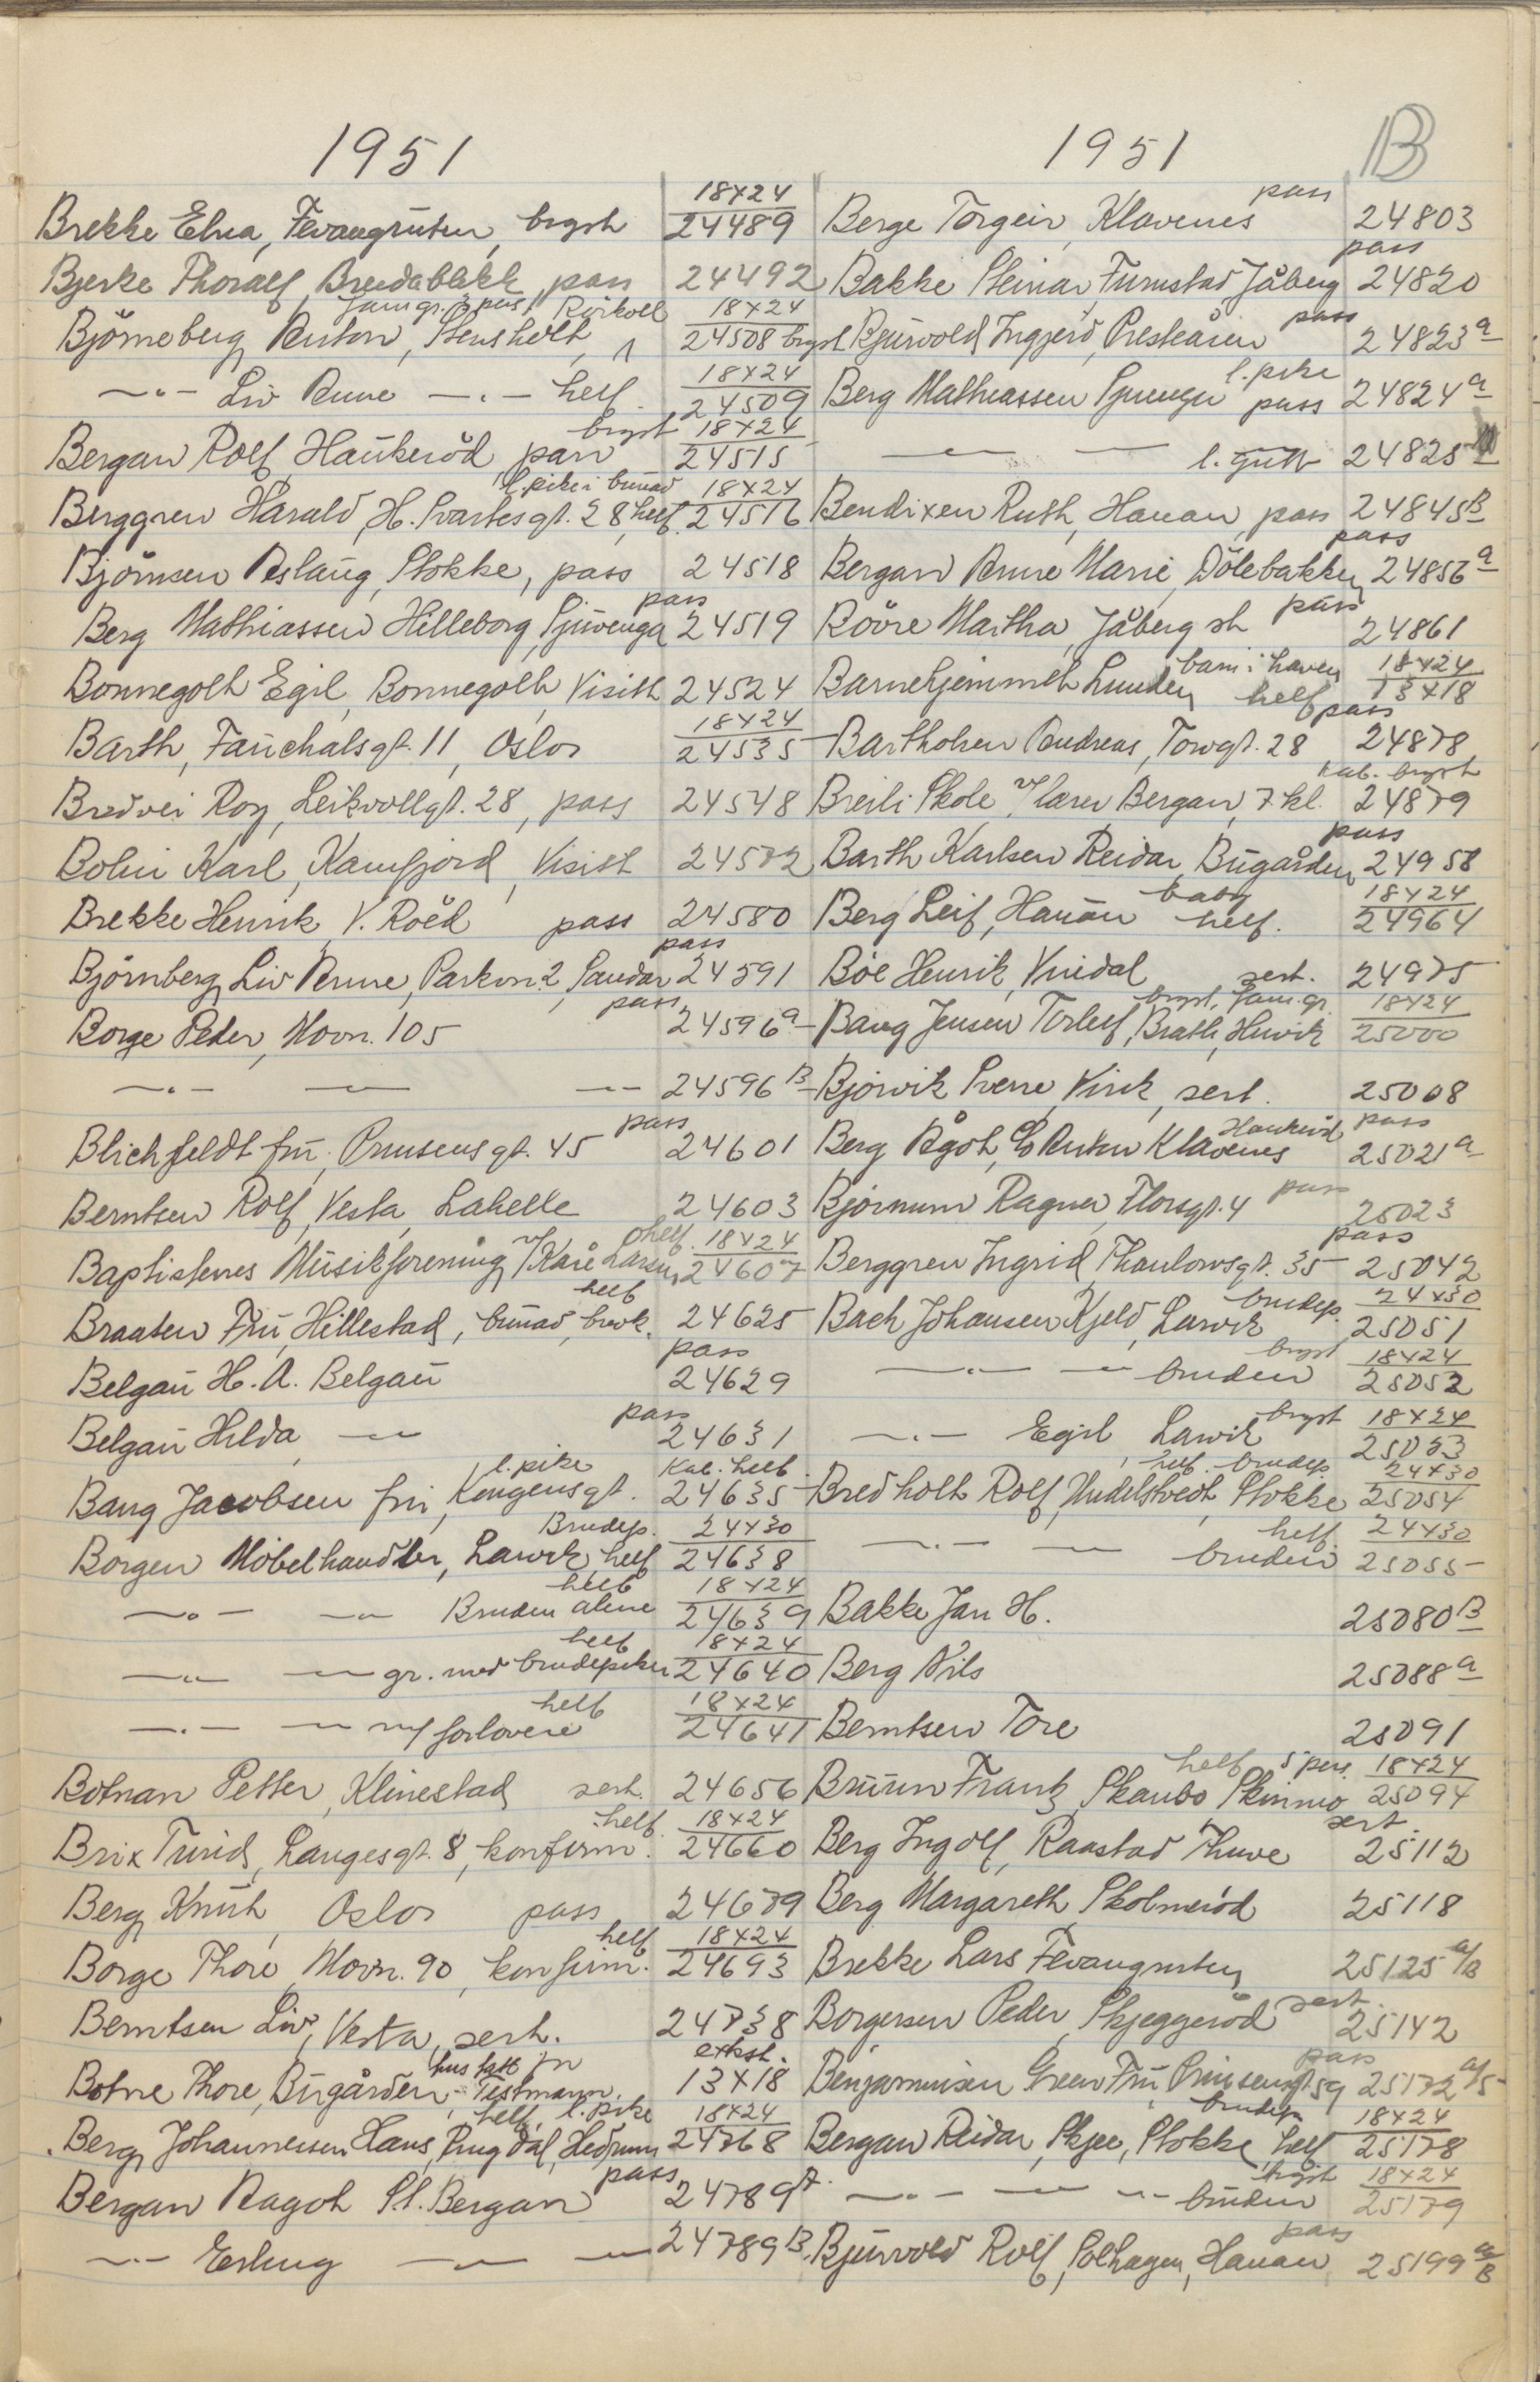 1951
Brekke Elna, Fevangruten, bryst 18x24 24489
Bjerke Thoralf, Breidablikk pass 24492
Björneberg Anton, Stensholt, Fam.gr. 3 pers. Rörkoll 18x24 24508 bryst
—"— Liv Anne —"— helf. 18x24 24509
Bergan Rolf, Haukeröd, pass bryst 18x24 24515
Berggren Harald, H. Svartesgt. 28, helf. l. pike i bunad 18x24 24516
Björnsen Aslaug, Stokke, pass 24518
Berg Mathiassen Hilleborg, Sjuvenga pass 24519
Bonnegolt Egil, Bonnegolt, Visitt 24524
Barth, Fauchalsgt. 11, Oslo 18x24 24535
Bredvei Roy, Leikvollgt. 28, pass 24548
Bolin Karl, Kamfjord, Visitt 24572
Brekke Henrik, V. Roëd pass 24580
Björnberg Liv Anne, Parkvn. 2, Sandar pass 24591
Borge Peder, Movn. 105 pass 24596a
—"— — — 24596B
Blichfeldt fru, Prinsensgt. 45 pass 24601
Berntsen Rolf, Vesta, Lahelle 24603
Baptistenes Musikforening v/Kåre Larsen helf. 18x24 24607
Braaten Fru, Hillestad, bunad, brok. helf 24625
Belgau H. A. Belgau pass 24629
Belgau Hilda, —"— pass 24631
Bang Jacobsen fru, Kongensgt. l. pike Kab. helf 24635
Borgen Möbelhandler, Larvik, helf Brudep. 24x30 24638
—"— —"— Bruden alene helf 18x24 24639
—"— —"— gr. med brudepiker helf 18x24 24640
—"— —"— m/ forlovere helf 18x24 24641
Botnan Petter, Klinestad sert. 24656
Brix Turid, Langesgt. 8, konfirm. helf. 18x24 24660
Berg Knut, Oslo pass 24679
Borge Thore, Movn. 90, konfirm. helf 18x24 24693
Berntsen Liv, Vesta, sert. 24738
Botne Thore, Bugården, hus tatt Testmann. ekst. 13x18
Berg Johannessen Hans, Ringdal, Hedrum helf, l. pike 18x24 24768
Bergan Ragoh St. Bergan pass 24789A
—"— Erling —"— — 24789B
1951 B
Berge Torgeir, Klavenes pass 24803
Bakke Steinar, Furustad, Jåberg pass 24820
Bjurvold Ingjerd, Presteåsen pass 24823a
Berg Mathiassen Sjuvenga l. pike pass 24824a
—"— — l. gutt 24825
Bendixen Ruth, Hauan, pass 24845B
Bergan Anne Marie, Dölebakken pass 24856a
Bövre Martha, Jåberg st pass 24861
Barnehjemmet Lunden barn i haven helf 18x24 13x18
Bartholsen Andreas, Torvgt. 28 pass 24878
Breili Skole, v/ lærer Bergan, 7. kl. kab. bryst 24879
Barth Karlsen Reidar, Bugården pass 24958
Berg Leif, Hauan baby helf. 18x24 24964
Böe Henrik, Vindal sert. 24975
Bang Jensen Torleif, Bratli, Huvik bryst, fam.gr. 18x24 25000
Bjorvik Sverre, Virik, sert. 25008
Berg Agot, c/o Anton Klavenes Haukeröd pass 25021a
Bjornum Ragna, Thorsgt. 4 pass 25023
Berggren Ingrid, Thaulowsgt. 35 pass 25042
Bach Johansen Kjeld, Larvik brudep. 24x30 25051
—"— — bruden bryst 18x24 25052
—"— Egil Larvik bryst 18x24 25053
Bredholt Rolf, Undelstvedt, Stokke helf. brudep. 24x30 25054
—"— — bruden helf. 24x30 25055
Bakke Jan H. 25080B
Berg Nils 25088a
Berntsen Tore 25091
Bruun Frantz, Skaubo Skinmo helf 5 pers. 18x24 25094
Berg Ingolf, Raastad Thuve sert. 25112
Berg Margareth Skolmeröd 25118
Brekke Lars Fevangruten 25125 a/B
Borgersen Peder, Skjeggeröd sert. 25142
Benjaminsen Green Fru Prinsensgt. 59 pass 25172 a/5
Bergan Reidar, Skjee, Stokke, helf brudep. 18x24 25178
—"— — — bruden bryst 18x24 25179
Bjurvold Rolf, Solhagen, Hauan pass 25199 a/B